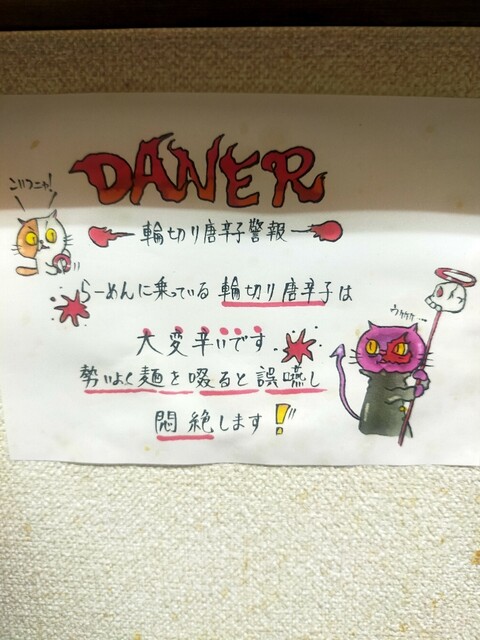 DANER
こいつニャ!
輪切り唐辛子警報
らーめんに乗っている輪切り唐辛子は
大変辛いです
ウケケケ…
勢いよく麺を啜ると誤嚥し
悶絶します!!